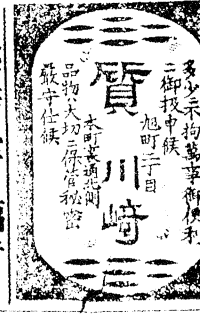 多少不拘萬事御便利
ニ御扱申候
旭町二丁目
質川崎
本町裏通北側
品物ハ大切ニ保管秘密
嚴守仕候